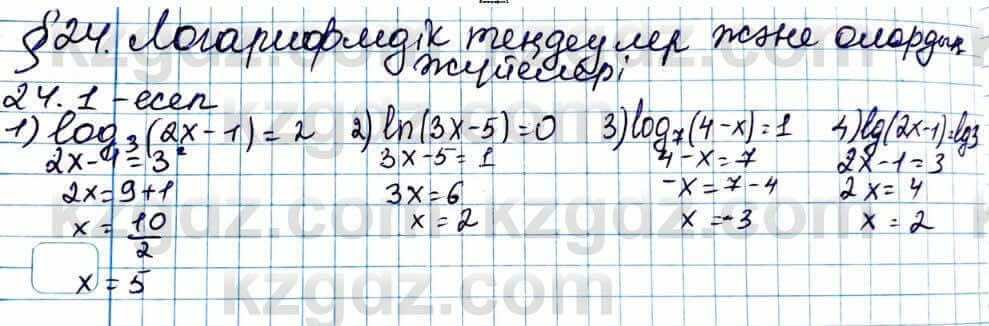 §24. Логарифмдік теңдеулер және олардың
жүйелері
24.1 -есеп
1) log₃(2x-1)=2
2x-1=3²
2x=9+1
x=10/2
x=5
2) ln(3x-5)=0
3x-5=1
3x=6
x=2
3) log₇(4-x)=1
4-x=7
-x=7-4
x=-3
4) lg(2x-1)=lg3
2x-1=3
2x=4
x=2
kzgdz.com